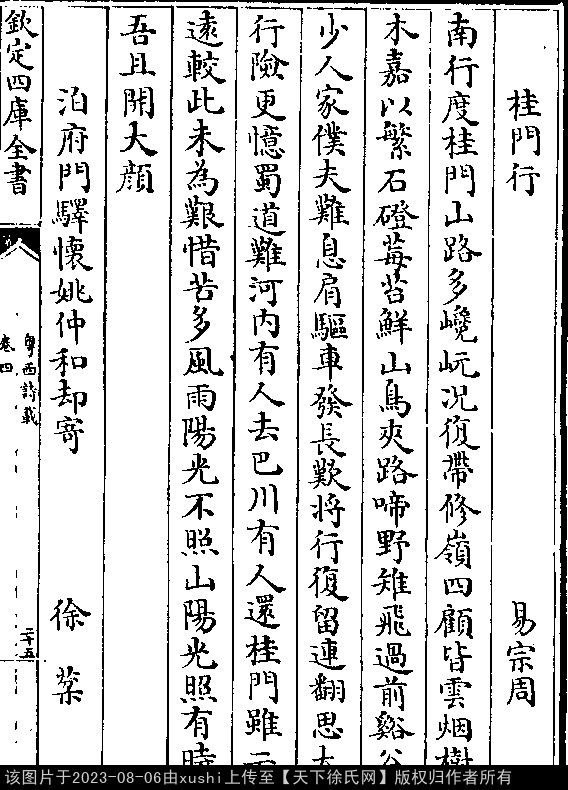 桂門行 易宗周
南行度桂門山路多巉岏况復帶修嶺四顧皆雲烟樹
木嘉以繁石磴莓苔鮮山鳥夾路啼野雉飛過前谿谷
少人家僕夫難息肩驅車發長歎將行復留連翻思太
行險更憶蜀道難河內有人去巴川有人還桂門雖云
遠較此未為艱惜苦多風雨陽光不照山陽光照有時
吾且開大顔
泊府門驛懷姚仲和却寄 徐棻
欽定四庫全書
粤西詩載
卷四
二十五
该图片于2023-08-06由xushi上传至【天下徐氏网】版权归作者所有